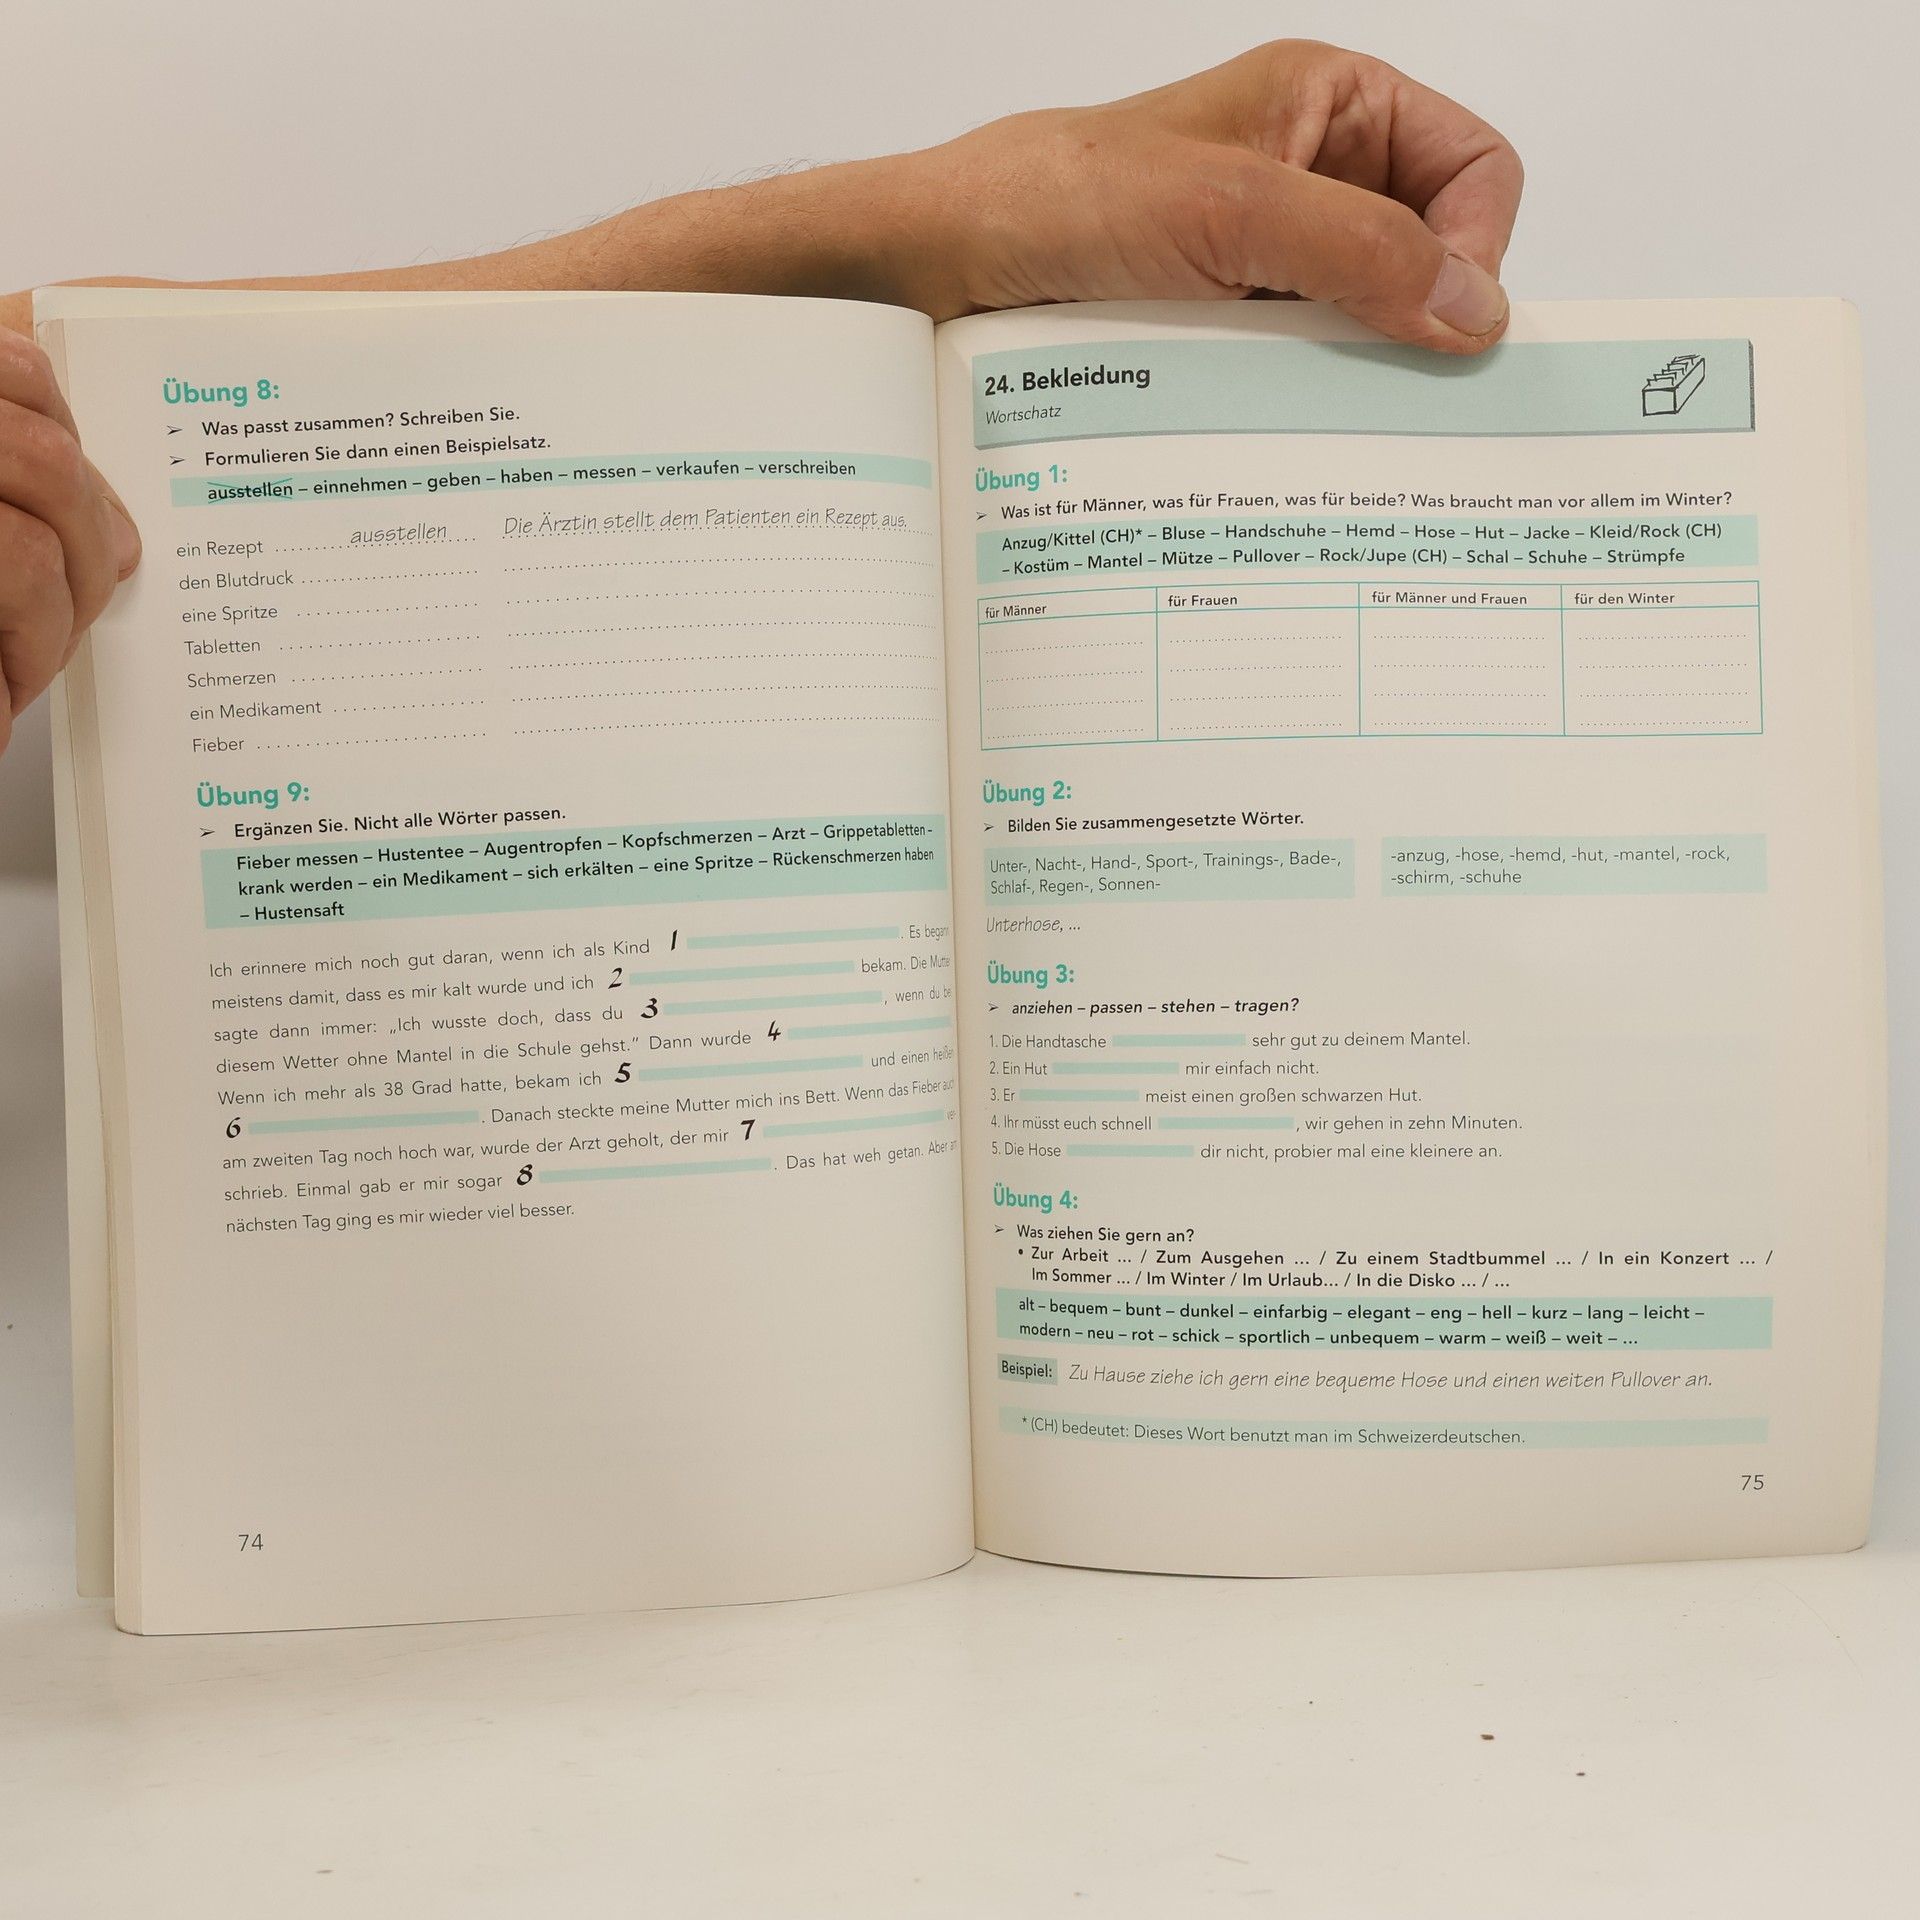 Übung 8:
➢ Was passt zusammen? Schreiben Sie.
➢ Formulieren Sie dann einen Beispielsatz.
ausstellen – einnehmen – geben – haben – messen – verkaufen – verschreiben
ein Rezept ........ ausstellen .... Die Ärztin stellt dem Patienten ein Rezept aus.
den Blutdruck
eine Spritze
Tabletten
Schmerzen
ein Medikament
Fieber
Übung 9:
➢ Ergänzen Sie. Nicht alle Wörter passen.
Fieber messen – Hustentee – Augentropfen – Kopfschmerzen – Arzt – Grippetabletten –
krank werden – ein Medikament – sich erkälten – eine Spritze – Rückenschmerzen haben
– Hustensaft
Ich erinnere mich noch gut daran, wenn ich als Kind 1 . Es begann
meistens damit, dass es mir kalt wurde und ich 2 bekam. Die Mutter
sagte dann immer: „Ich wusste doch, dass du 3 , wenn du bei
diesem Wetter ohne Mantel in die Schule gehst.” Dann wurde 4
Wenn ich mehr als 38 Grad hatte, bekam ich 5 und einen heißen
6 . Danach steckte meine Mutter mich ins Bett. Wenn das Fieber auch
am zweiten Tag noch hoch war, wurde der Arzt geholt, der mir 7 ver-
schrieb. Einmal gab er mir sogar 8 . Das hat weh getan. Aber am
nächsten Tag ging es mir wieder viel besser.
74
24. Bekleidung
Wortschatz
Übung 1:
➢ Was ist für Männer, was für Frauen, was für beide? Was braucht man vor allem im Winter?
Anzug/Kittel (CH)* – Bluse – Handschuhe – Hemd – Hose – Hut – Jacke – Kleid/Rock (CH)
– Kostüm – Mantel – Mütze – Pullover – Rock/Jupe (CH) – Schal – Schuhe – Strümpfe
für Männer für Frauen für Männer und Frauen für den Winter
Übung 2:
➢ Bilden Sie zusammengesetzte Wörter.
Unter-, Nacht-, Hand-, Sport-, Trainings-, Bade-,
Schlaf-, Regen-, Sonnen-
-anzug, -hose, -hemd, -hut, -mantel, -rock,
-schirm, -schuhe
Unterhose, ...
Übung 3:
➢ anziehen – passen – stehen – tragen?
1. Die Handtasche sehr gut zu deinem Mantel.
2. Ein Hut mir einfach nicht.
3. Er meist einen großen schwarzen Hut.
4. Ihr müsst euch schnell , wir gehen in zehn Minuten.
5. Die Hose dir nicht, probier mal eine kleinere an.
Übung 4:
➢ Was ziehen Sie gern an?
• Zur Arbeit ... / Zum Ausgehen ... / Zu einem Stadtbummel ... / In ein Konzert ... /
Im Sommer ... / Im Winter / Im Urlaub... / In die Disko ... / ...
alt – bequem – bunt – dunkel – einfarbig – elegant – eng – hell – kurz – lang – leicht –
modern – neu – rot – schick – sportlich – unbequem – warm – weiß – weit – ...
Beispiel: Zu Hause ziehe ich gern eine bequeme Hose und einen weiten Pullover an.
* (CH) bedeutet: Dieses Wort benutzt man im Schweizerdeutschen.
75